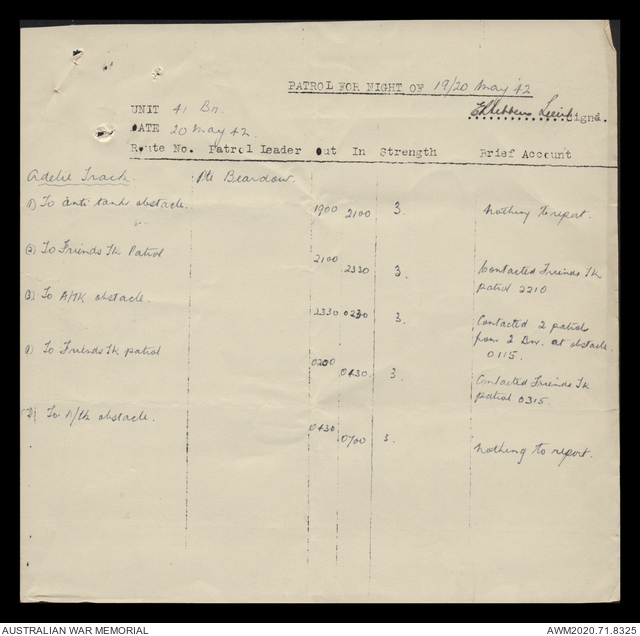 PATROL FOR NIGHT OF 19/20 May '42
UNIT 41 Bn. Lieut Signd.
DATE 20 May 42.
Route No. Patrol Leader Out In Strength Brief Account
Adelie Track. Pte Beardow.
1) To anti tank obstacle. 1900 2100 3. Nothing to report.
(2) To Friends Tk Patrol 2100 2330 3. Contacted Friends Tk
patrol 2210
(3) To A/TK obstacle. 2330 0230 3. Contacted 2 patrols
from 2 Bn. at obstacle.
0115.
To Friends Tk patrol 0200 0430 3. Contacted Friends Tk
patrol 0315.
To A/tk obstacle. 0430 0700 3. Nothing to report.
AUSTRALIAN WAR MEMORIAL AWM2020.71.8325